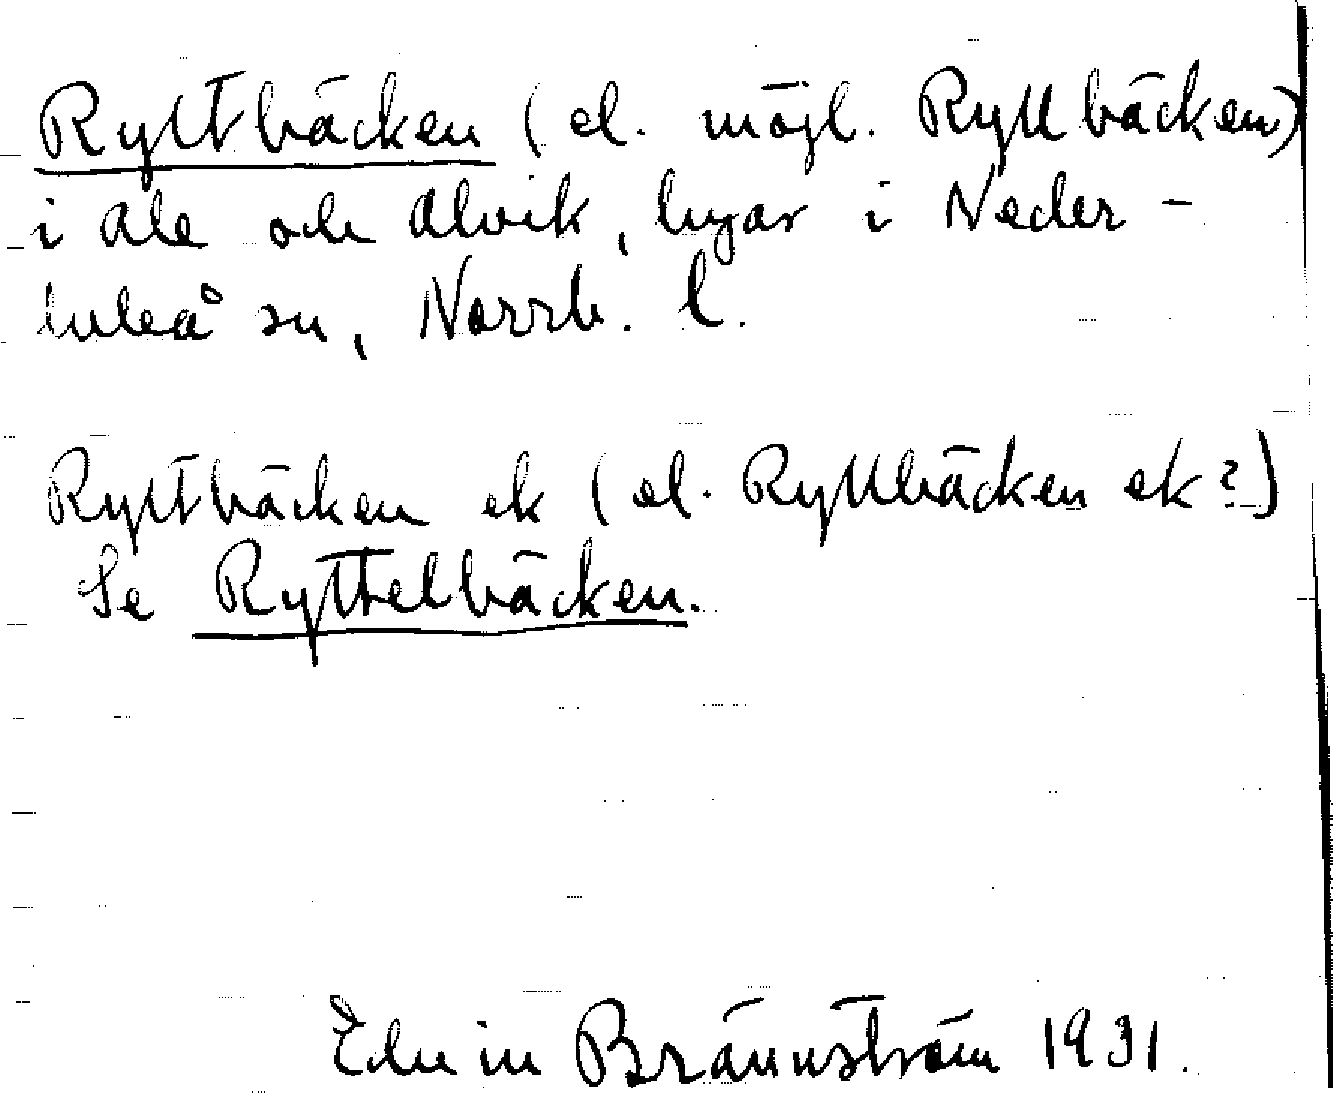 Ryttbäcken (el. möjl. Ryllbäcken)
i Ale och Alvik, byar i Neder-
luleå sn, Norrb. l.
Ryttbäcken ek (el. Ryllbäcken ek?)
Se Ryttelbäcken.
Edvin Brännström 1931.